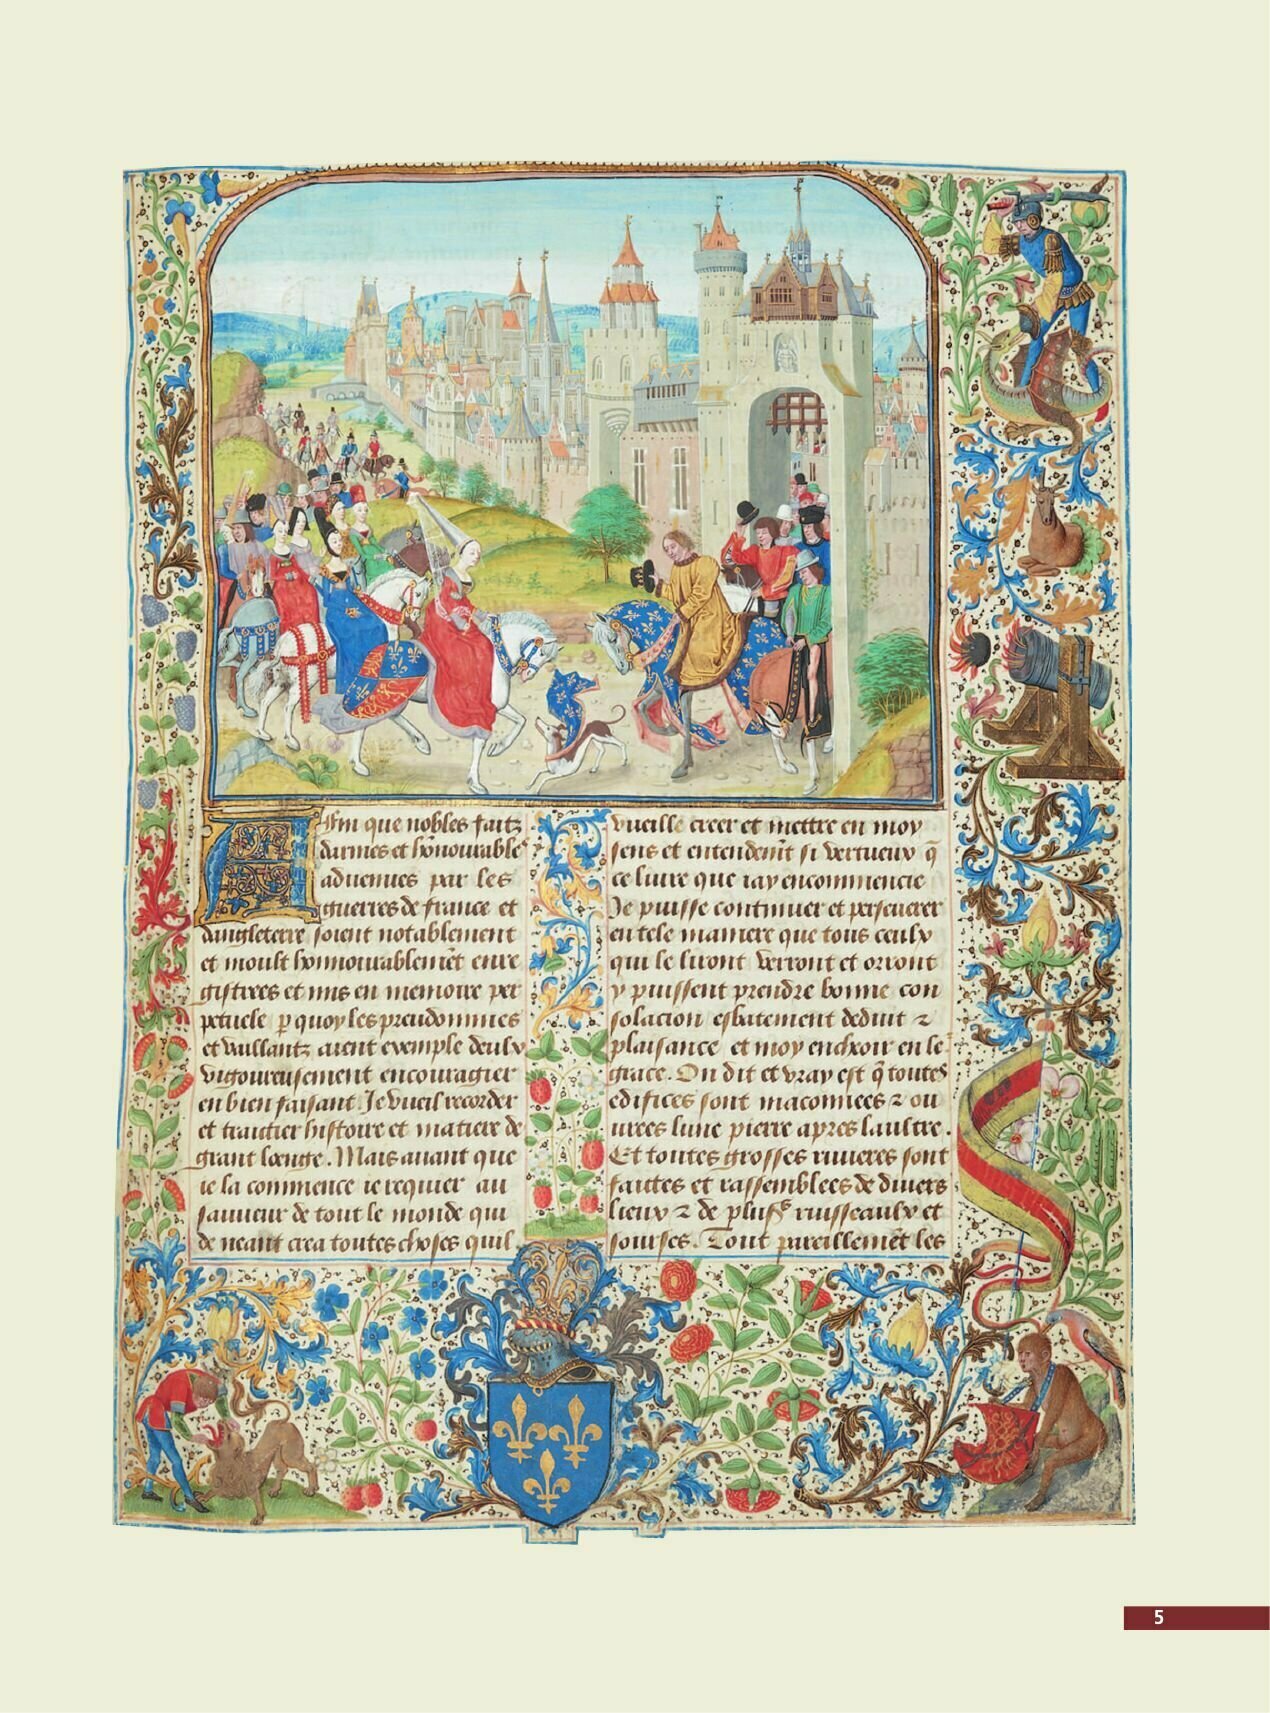 Afin que nobles faitz
darmes et honnourables
aduenues par les
guerres de france et
dangleterre soient notablement
et moult honnourablemẽt enre
gistrees et mis en memoire per
petuele p quoy les preudommes
et vaillantz aient exemple deulx
vigoureusement encouragier
en bien faisant. Je vueil recorder
et traictier histoire et matiere de
grant loenge. Mais auant que
ie la commence ie requier au
sauueur de tout le monde qui
de neant crea toutes choses quil
vueille creer et mettre en moy
sens et entendemẽt si vertueux q̃
ce liure que iay encommencie
Je puisse continuer et perseuerer
en tele maniere que tous ceulx
qui le liront verront et orront
y puissent prendre bonne con
solacion esbatement deduit ⁊
plaisance et moy encheoir en leʳ
grace. On dit et vray est q̃ toutes
edifices sont maconnees ⁊ ou
urees lune pierre apres laultre.
Et toutes grosses riuieres sont
faittes et rassemblees de diuers
lieux ⁊ de plusʳˢ ruisseaulx et
sourses. Tout pareillemẽt les
5